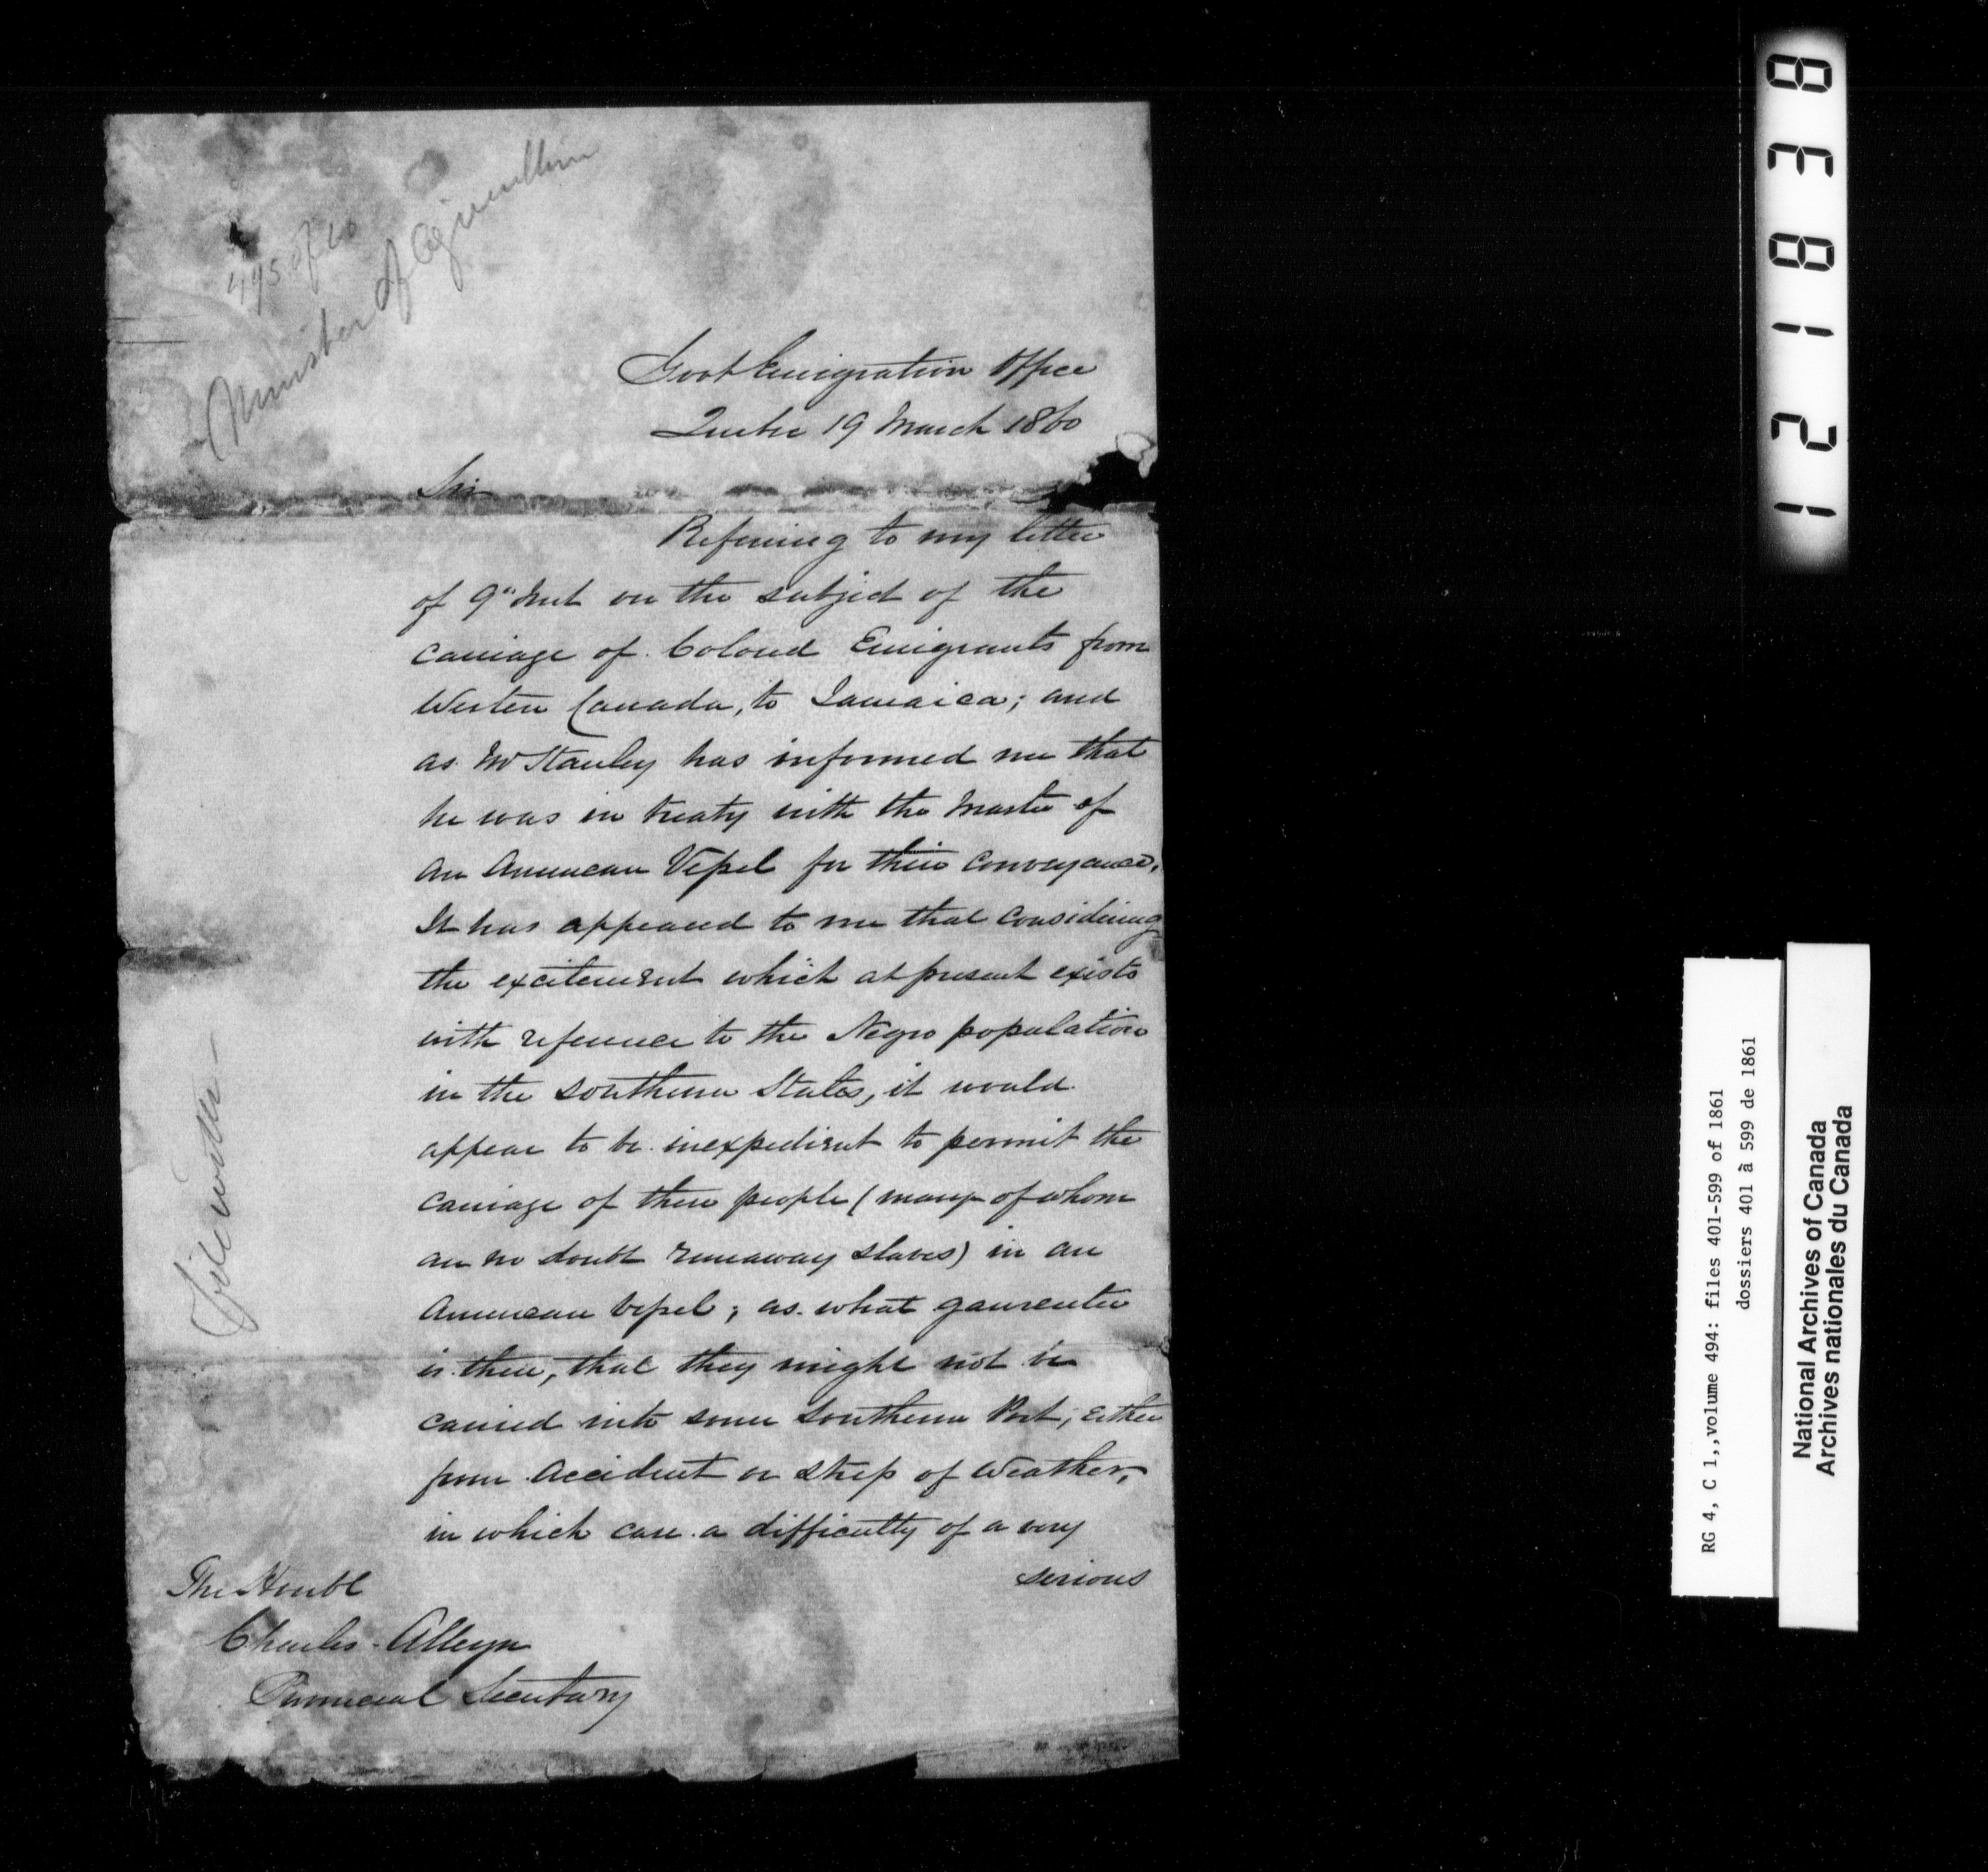 495 of 60
Minister of Agriculture
Govt Emigration Office
Quebec 19 March 1860
Sir
Referring to my letter
of 9th Inst on the subject of the
carriage of Colored Emigrants from
Western Canada, to Jamaica; and
as Mr Stanley has informed me that
he was in treaty with the Master of
an American Vessel for their conveyance,
It has appeared to me that considering
the excitement which at present exists
with reference to the Negro population
in the southern States, it would
appear to be inexpedient to permit the
carriage of these people (many of whom
are no doubt runaway slaves) in an
American vessel; as what gaurentee
is there, that they might not be
carried into some Southern Port, either
from accident or stress of weather,
in which case a difficulty of a very
serious
The Honbl
Charles Alleyn
Provincial Secretary
File under
RG 4, C 1,,volume 494: files 401-599 of 1861
dossiers 401 à 599 de 1861
National Archives of Canada
Archives nationales du Canada
121838